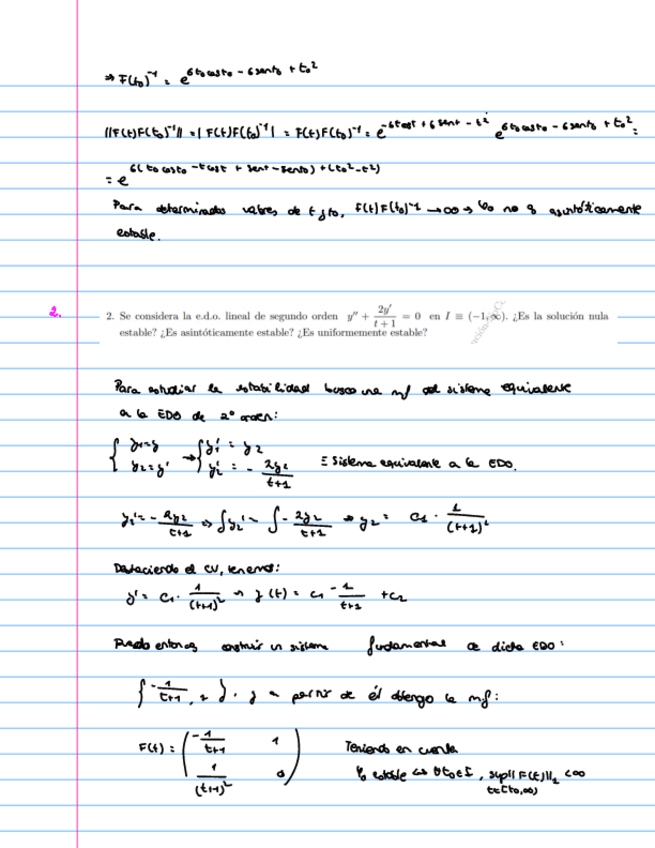 ⇒ F(t₀)⁻¹ = e^(6t₀cost₀ - 6sent₀ + t₀²)
||F(t)F(t₀)⁻¹|| = |F(t)F(t₀)⁻¹| = F(t)F(t₀)⁻¹ = e^(-6tcost + 6sent - t²) e^(6t₀cost₀ - 6sent₀ + t₀²) =
= e^(6(t₀cost₀ - tcost + sent - sent₀) + (t₀² - t²))
Para determinados valores de t y t₀, F(t)F(t₀)⁻¹ → ∞ ⇒ φ₀ no es asintóticamente
estable.
2.
2. Se considera la e.d.o. lineal de segundo orden y'' + 2y'/(t+1) = 0 en I ≡ (−1,∞). ¿Es la solución nula
estable? ¿Es asintóticamente estable? ¿Es uniformemente estable?
Para estudiar la estabilidad busco una mf del sistema equivalente
a la EDO de 2º orden:
{ y₁=y → { y₁' = y₂
{ y₂=y' { y₂' = - 2y₂/(t+1) ≡ Sistema equivalente a la EDO.
y₂' = - 2y₂/(t+1) ⇒ ∫y₂' = ∫ - 2y₂/(t+1) ⇒ y₂ = c₁ · 1/(t+1)²
Deshaciendo el CV, tenemos:
y' = c₁ · 1/(t+1)² ⇒ y(t) = c₁ -1/(t+1) + c₂
Puedo entonces construir un sistema fundamental de dicha EDO:
{ -1/(t+1), 1 }, y a partir de él obtengo la mf:
F(t) = ( -1/(t+1) 1 ; 1/(t+1)² 0 )
Teniendo en cuenta
φ₀ estable ⇔ ∀t₀∈I, sup||F(t)||₂ < ∞
t∈[t₀,∞)